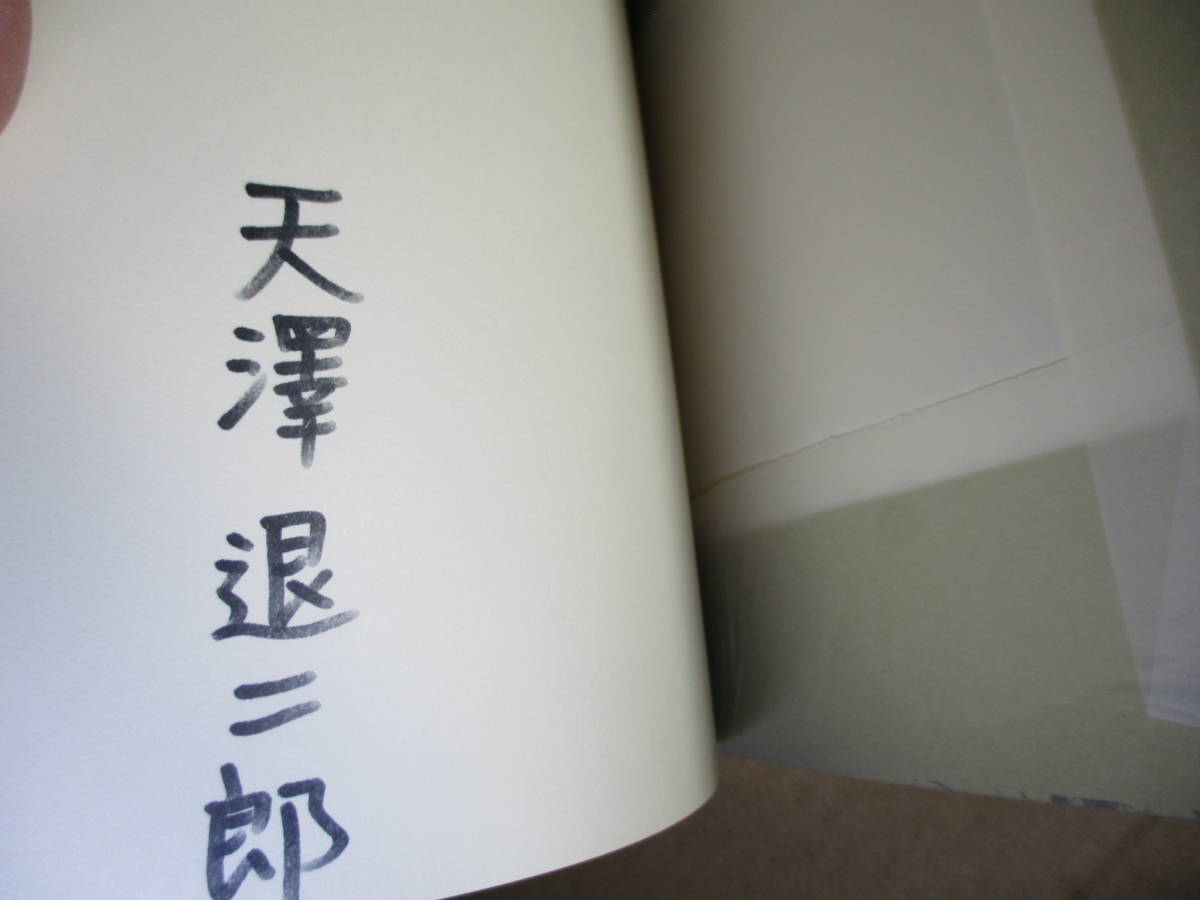 天澤退二郎